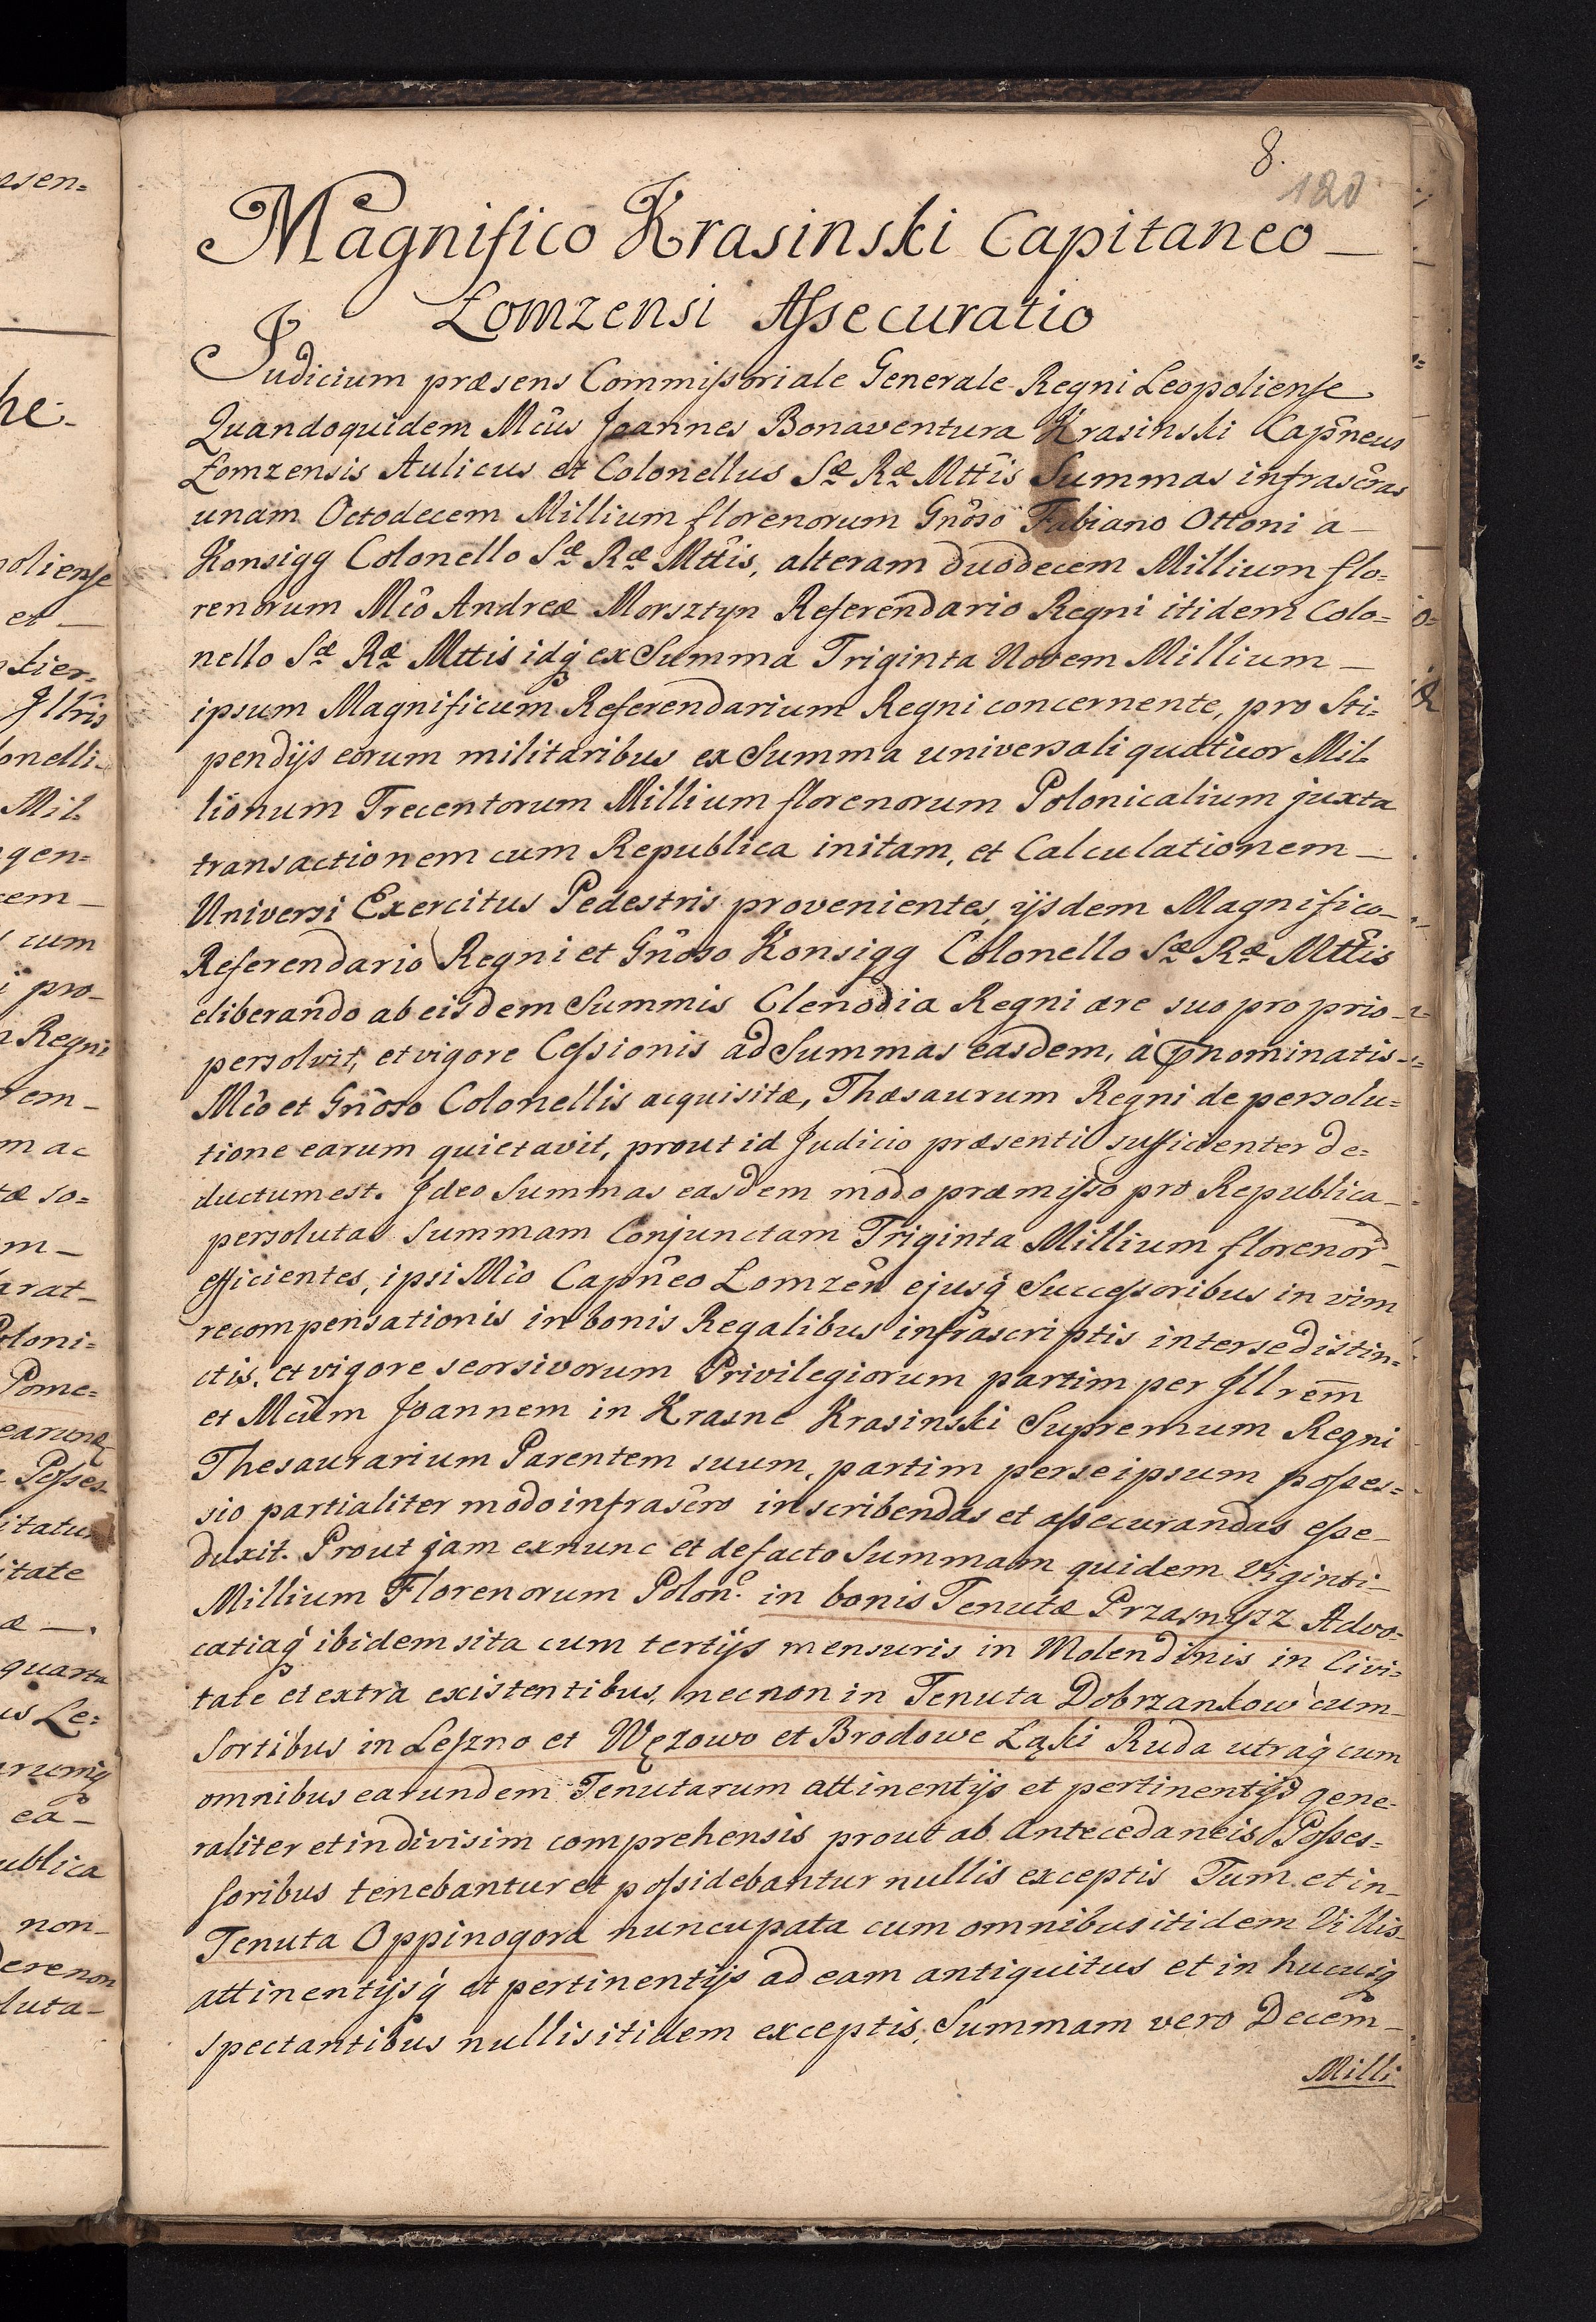 8.
120
Magnifico Krasinski Capitaneo —
Łomzensi Assecuratio
Judicium præsens Commissoriale Generale Regni Leopoliense
Quandoquidem Mcûs Joannes Bonaventura Krasinski Capn̂eus
Łomzensis Aulicus et Colonellus Sæ Ræ Mttîs Summas infrascr̂as
unam Octodecem Millium florenorum Gn̂oso Fabiano Ottoni a —
Konsigg Colonello Sæ Ræ Mttîs, alteram duodecem Millium flo=
renorum Mcô Andreæ Morsztyn Referendario Regni itidem Colo=
nello Sæ Ræ Mttis idq́ ex Summa Triginta Novem Millium —
ipsum Magnificum Referendarium Regni concernente, pro Sti=
pendijs eorum militaribus ex Summa universali quatuor Mil=
lionum Trecentorum Millium florenorum Polonicalium juxta
transactionem cum Republica initam, et Calculationem —
Universi Exercitus Pedestris provenientes, ijsdem Magnifico —
Referendario Regni et Gn̂oso Konsigg Colonello Sæ Ræ Mttîs
eliberando ab eisdem Summis Clenodia Regni ære suo proprio —
persolvit, et vigore Cessionis ad Summas easdem, à p̄nominatis —
Mcô et Gn̂oso Colonellis acquisitæ, Thæsaurum Regni de persolu=
tione earum quietavit, prout id Judicio præsenti sufficienter de=
ductum est. Jdeo Summas easdem modo præmisso pro Republica —
persolutas Summam Conjunctam Triginta Millium florenor̂ —
efficientes, ipsi Mcô Capn̂eo Łomzen̂ ejusq́ Successoribus in vim
recompensationis in bonis Regalibus infrascriptis inter se distin=
ctis, et vigore seorsivorum Privilegiorum partim per Jllr̄em
et Mcûm Joannem in Krasne Krasinski Supremum Regni
Thesaurarium Parentem suum, partim per se ipsum posses=
sio partialiter modo infrascr̂o inscribendas et assecurandas esse —
duxit. Prout jam exnunc et defacto Summam quidem Viginti —
Millium Florenorum Polon̂. in bonis Tenutæ Przasnysz Advo=
catiaq́ ibidem sita cum tertijs mensuris in Molendinis in Civi=
tate et extra existentibus, necnon in Tenuta Dobrzankow cum —
Sortibus in Leszno et Węzowo et Brodowe Łąki Ruda utraq́ cum
omnibus earundem Tenutarum attinentijs et pertinentijs gene=
raliter et indivisim comprehensis prout ab Antecedaneis Posses=
soribus tenebantur et possidebantur nullis exceptis Tum et in —
Tenuta Oppinogora nuncupata cum omnibus itidem Villis —
attinentijsq́ et pertinentijs ad eam antiquitus et in hucusq́
spectantibus nullis itidem exceptis, Summam vero Decem —
Milli